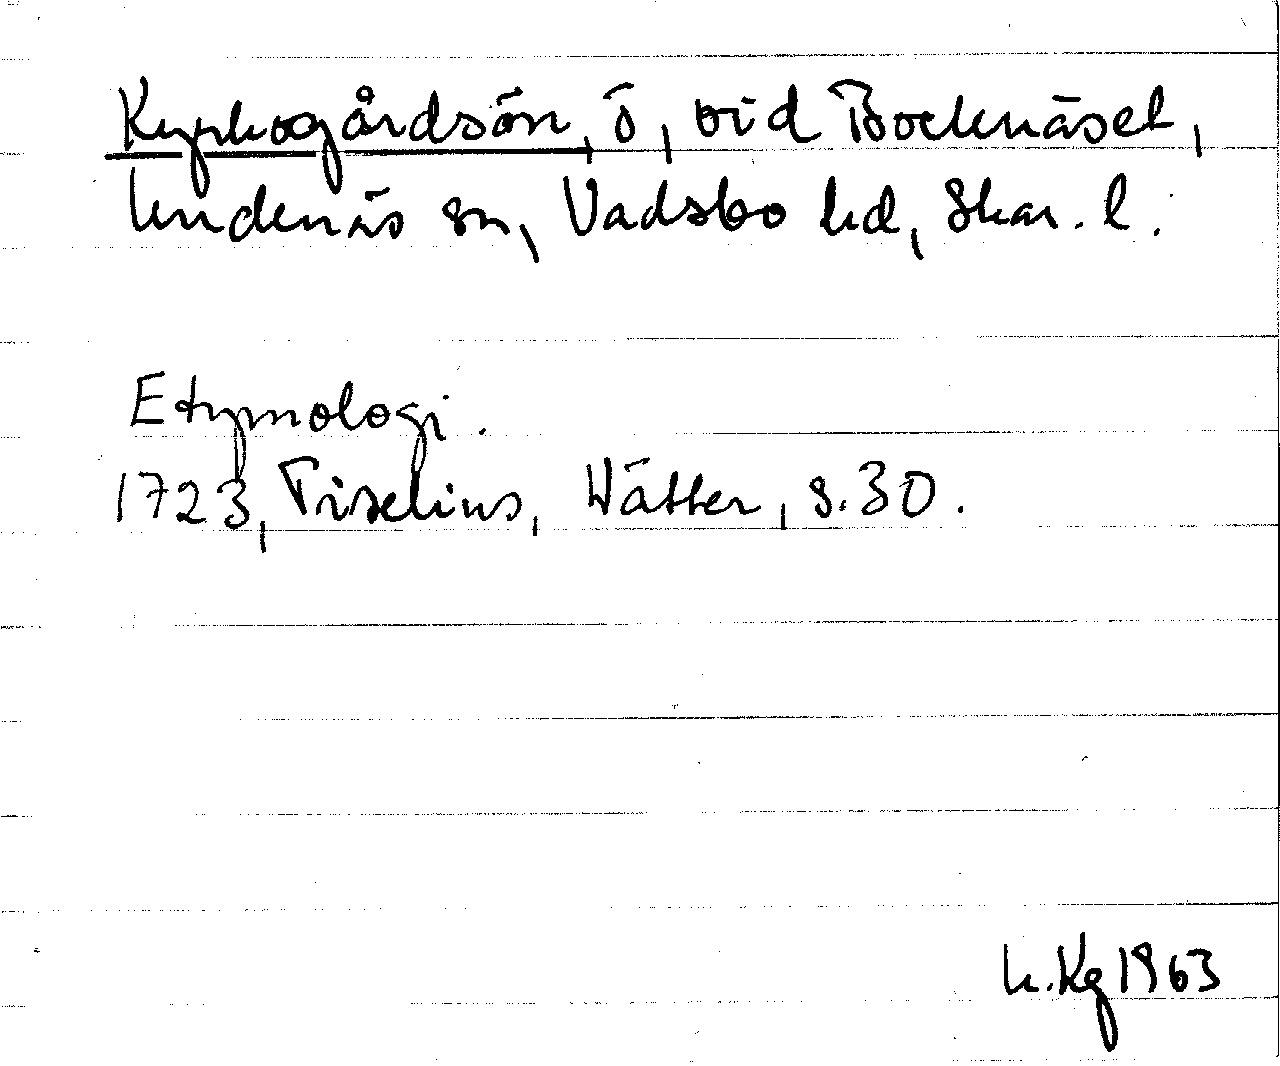 Kyrkogårdsön, ö, vid Bocknäset,
Undenäs sn, Vadsbo hd, Skar. l.
Etymologi.
1723, Tiselius, Wätter, s. 30.
h. Kg 1963